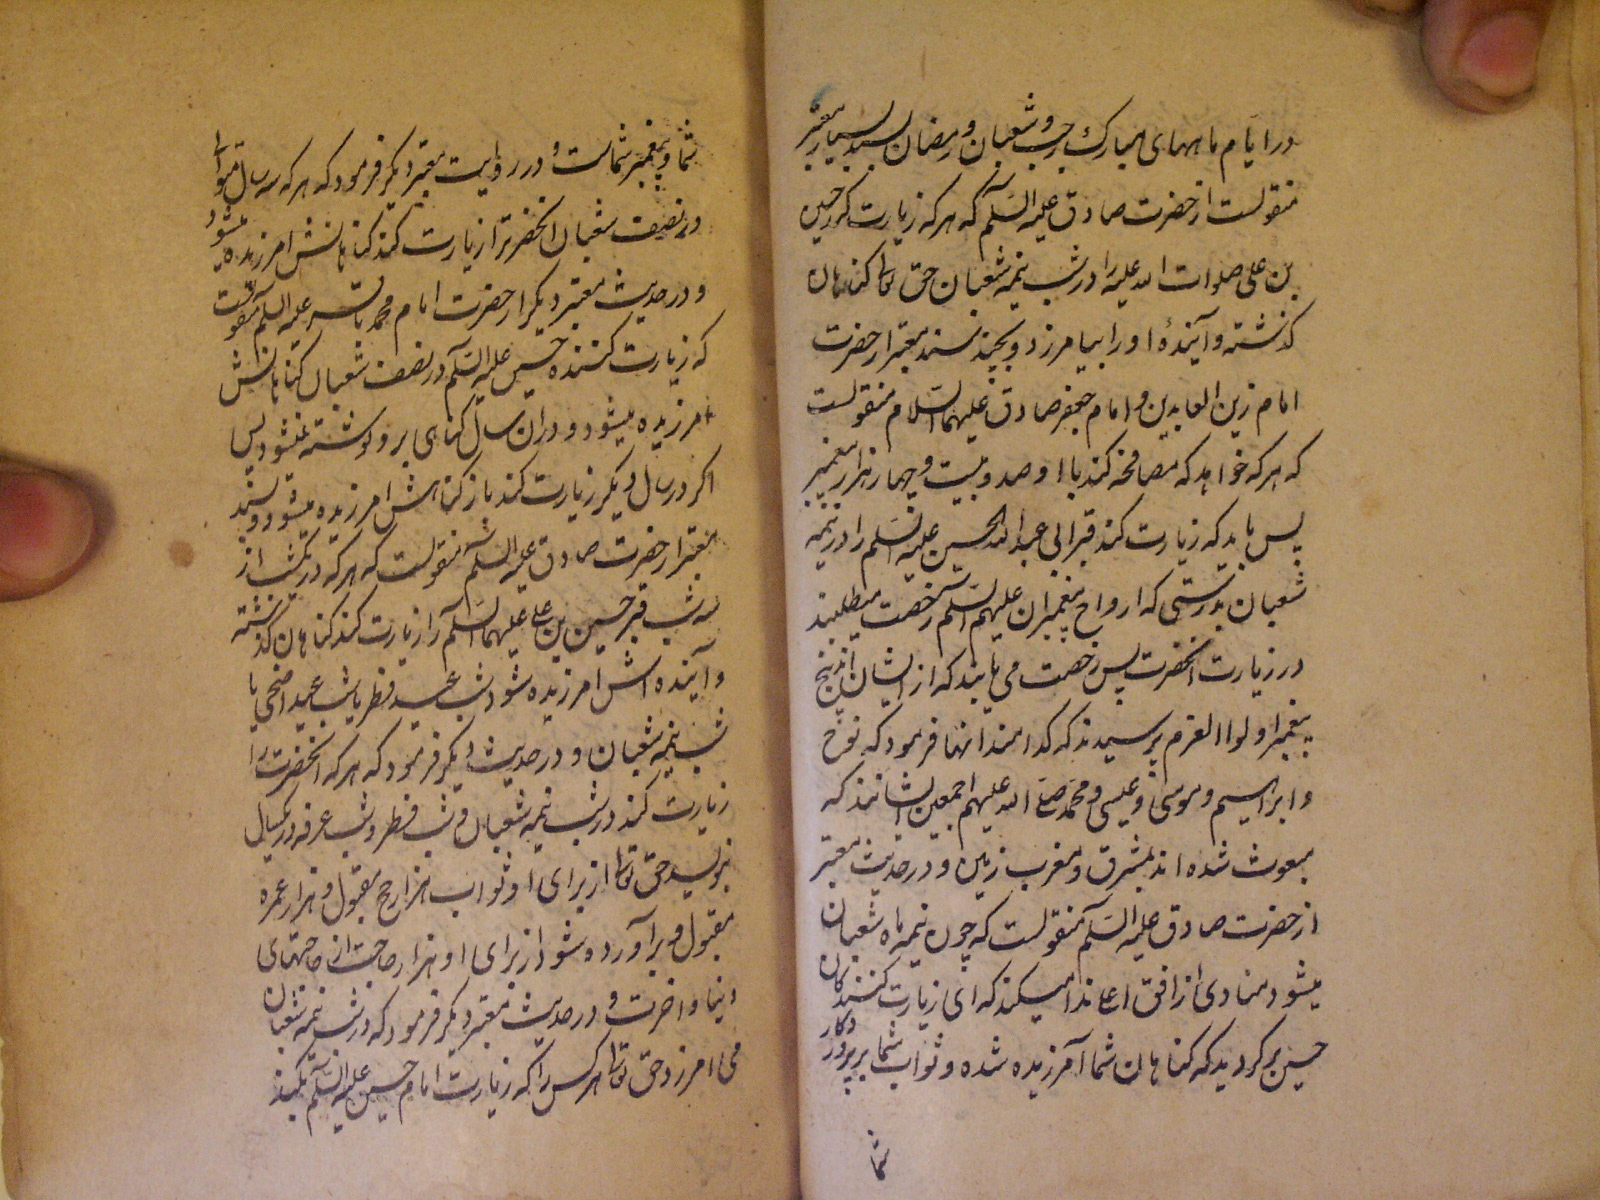 در ایام ماههای مبارک رجب و شعبان و رمضان بسند بسیار معتبر
منقولست از حضرت صادق علیه السلم که هر که زیارت کند حسین
بن علی صلوات الله علیه را در شب نیمه شعبان حق تعالی کناهان
کذشته و آیندهٔ او را بیامرزد و بچند سند معتبر از حضرت
امام زین العابدین و امام جعفر صادق علیهما السلام منقولست
که هر که خواهد که مصافحه کند با او صد و بیست و چهار هزار پیغمبر
پس باید که زیارت کند قبر ابی عبدالله الحسین علیه السلم را در نیمه
شعبان بدرستی که ارواح پیغمبران علیهم السلم رخصت میطلبند
در زیارت آنحضرت پس رخصت می یابند که از ایشان اند پنج
پیغمبر اولوا العزم پرسیدند که کدامند آنها فرمود که نوح
و ابراهیم و موسی و عیسی و محمد صلی الله علیهم اجمعین ایشانند که
مبعوث شده اند بمشرق و مغرب زمین و در حدیث معتبر
از حضرت صادق علیه السلم منقولست که چون نیمه ماه شعبان
میشود منادی از افق اعلا ندا میکند که ای زیارت کنندکان
حسین برکردید که کناهان شما آمرزیده شده و ثواب شما بر پروردکار
شما
شما و پیغمبر شماست و در روایت معتبر دیکر فرمود که هر که سه سال متوالی
در نصف شعبان آنحضرت را زیارت کند کناهانش امرزیده میشود
و در حدیث معتبر دیکر از حضرت امام محمد باقر علیه السلم منقولست
که زیارت کننده حسین علیه السلم در نصف شعبان کناهانش
امرزیده میشود و در ان سال کناهی بر او نوشته نمیشود پس
اکر در سال دیکر زیارت کند باز کناهش امرزیده میشود و بسند
معتبر از حضرت صادق علیه السلم منقولست که هر که در یکشب از
سه شب قبر حسین بن علی علیهما السلم را زیارت کند کناهان کذشته
و آینده اش امرزیده شود شب عید فطر یا شب عید اضحی یا
شب نیمه شعبان و در حدیث دیکر فرمود که هر که آنحضرت را
زیارت کند در شب نیمه شعبان و شب فطر و شب عرفه در یکسال
بنویسد حق تعالی از برای او ثواب هزار حج مقبول و هزار عمره
مقبول و برآورده شود از برای او هزار حاجت از حاجتهای
دنیا و اخرت و در حدیث معتبر دیکر فرمود که در شب نیمه شعبان
می امرزد حق تعالی هر کس را که زیارت امام حسین علیه السلم بکند